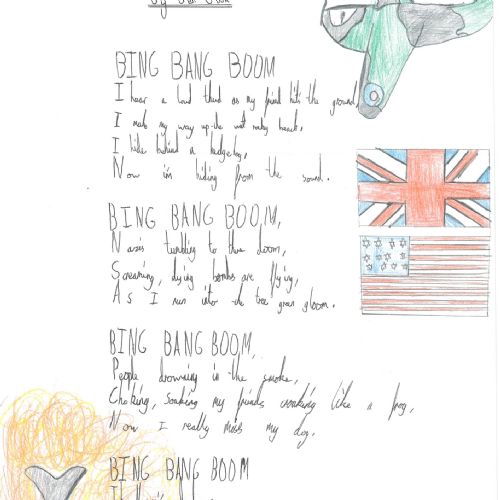 By
BING BANG BOOM
I hear a loud thud as my friend hits the ground,
I make my way up the wet rocky beach,
I hide behind a hedgehog,
Now im hiding from the sound.
BING BANG BOOM,
Nazis tumbling to there doom,
Screaming, dying bombs are flying,
As I run into the tree green gloom.
BING BANG BOOM,
People drowning in the smoke,
Choking, soaking my friends croaking like a frog,
Now I really miss my dog.
BING BANG BOOM